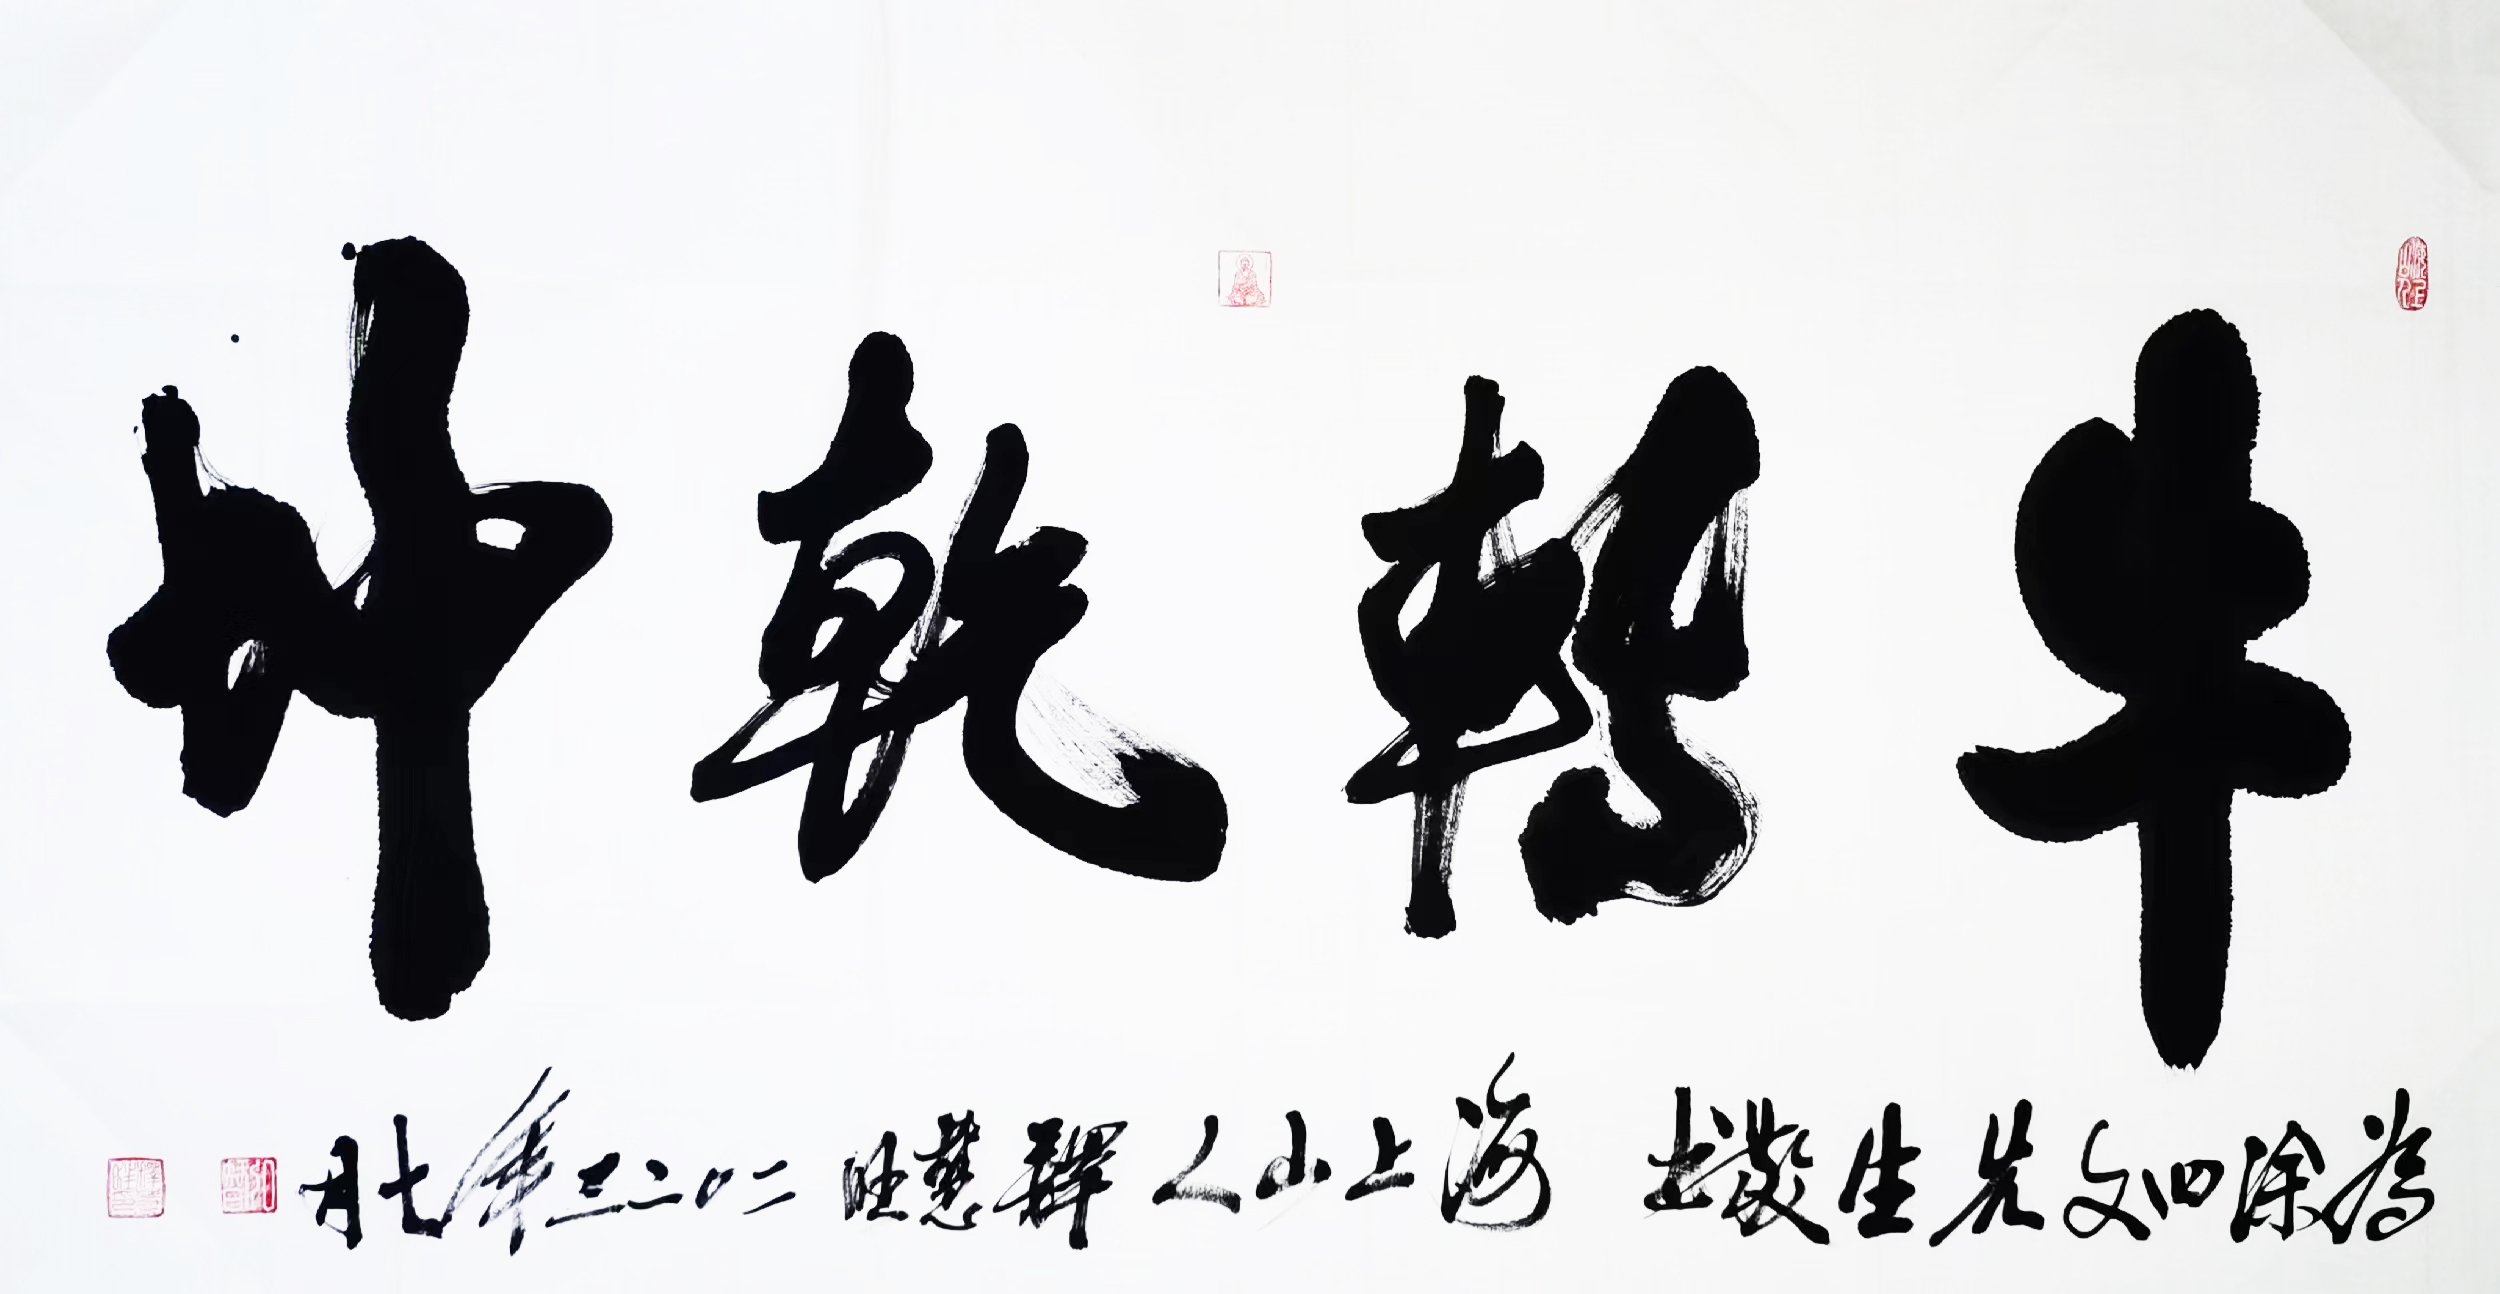 牛轉乾坤
為涂文先生 海上山人 釋慧旺 二〇二三年七月